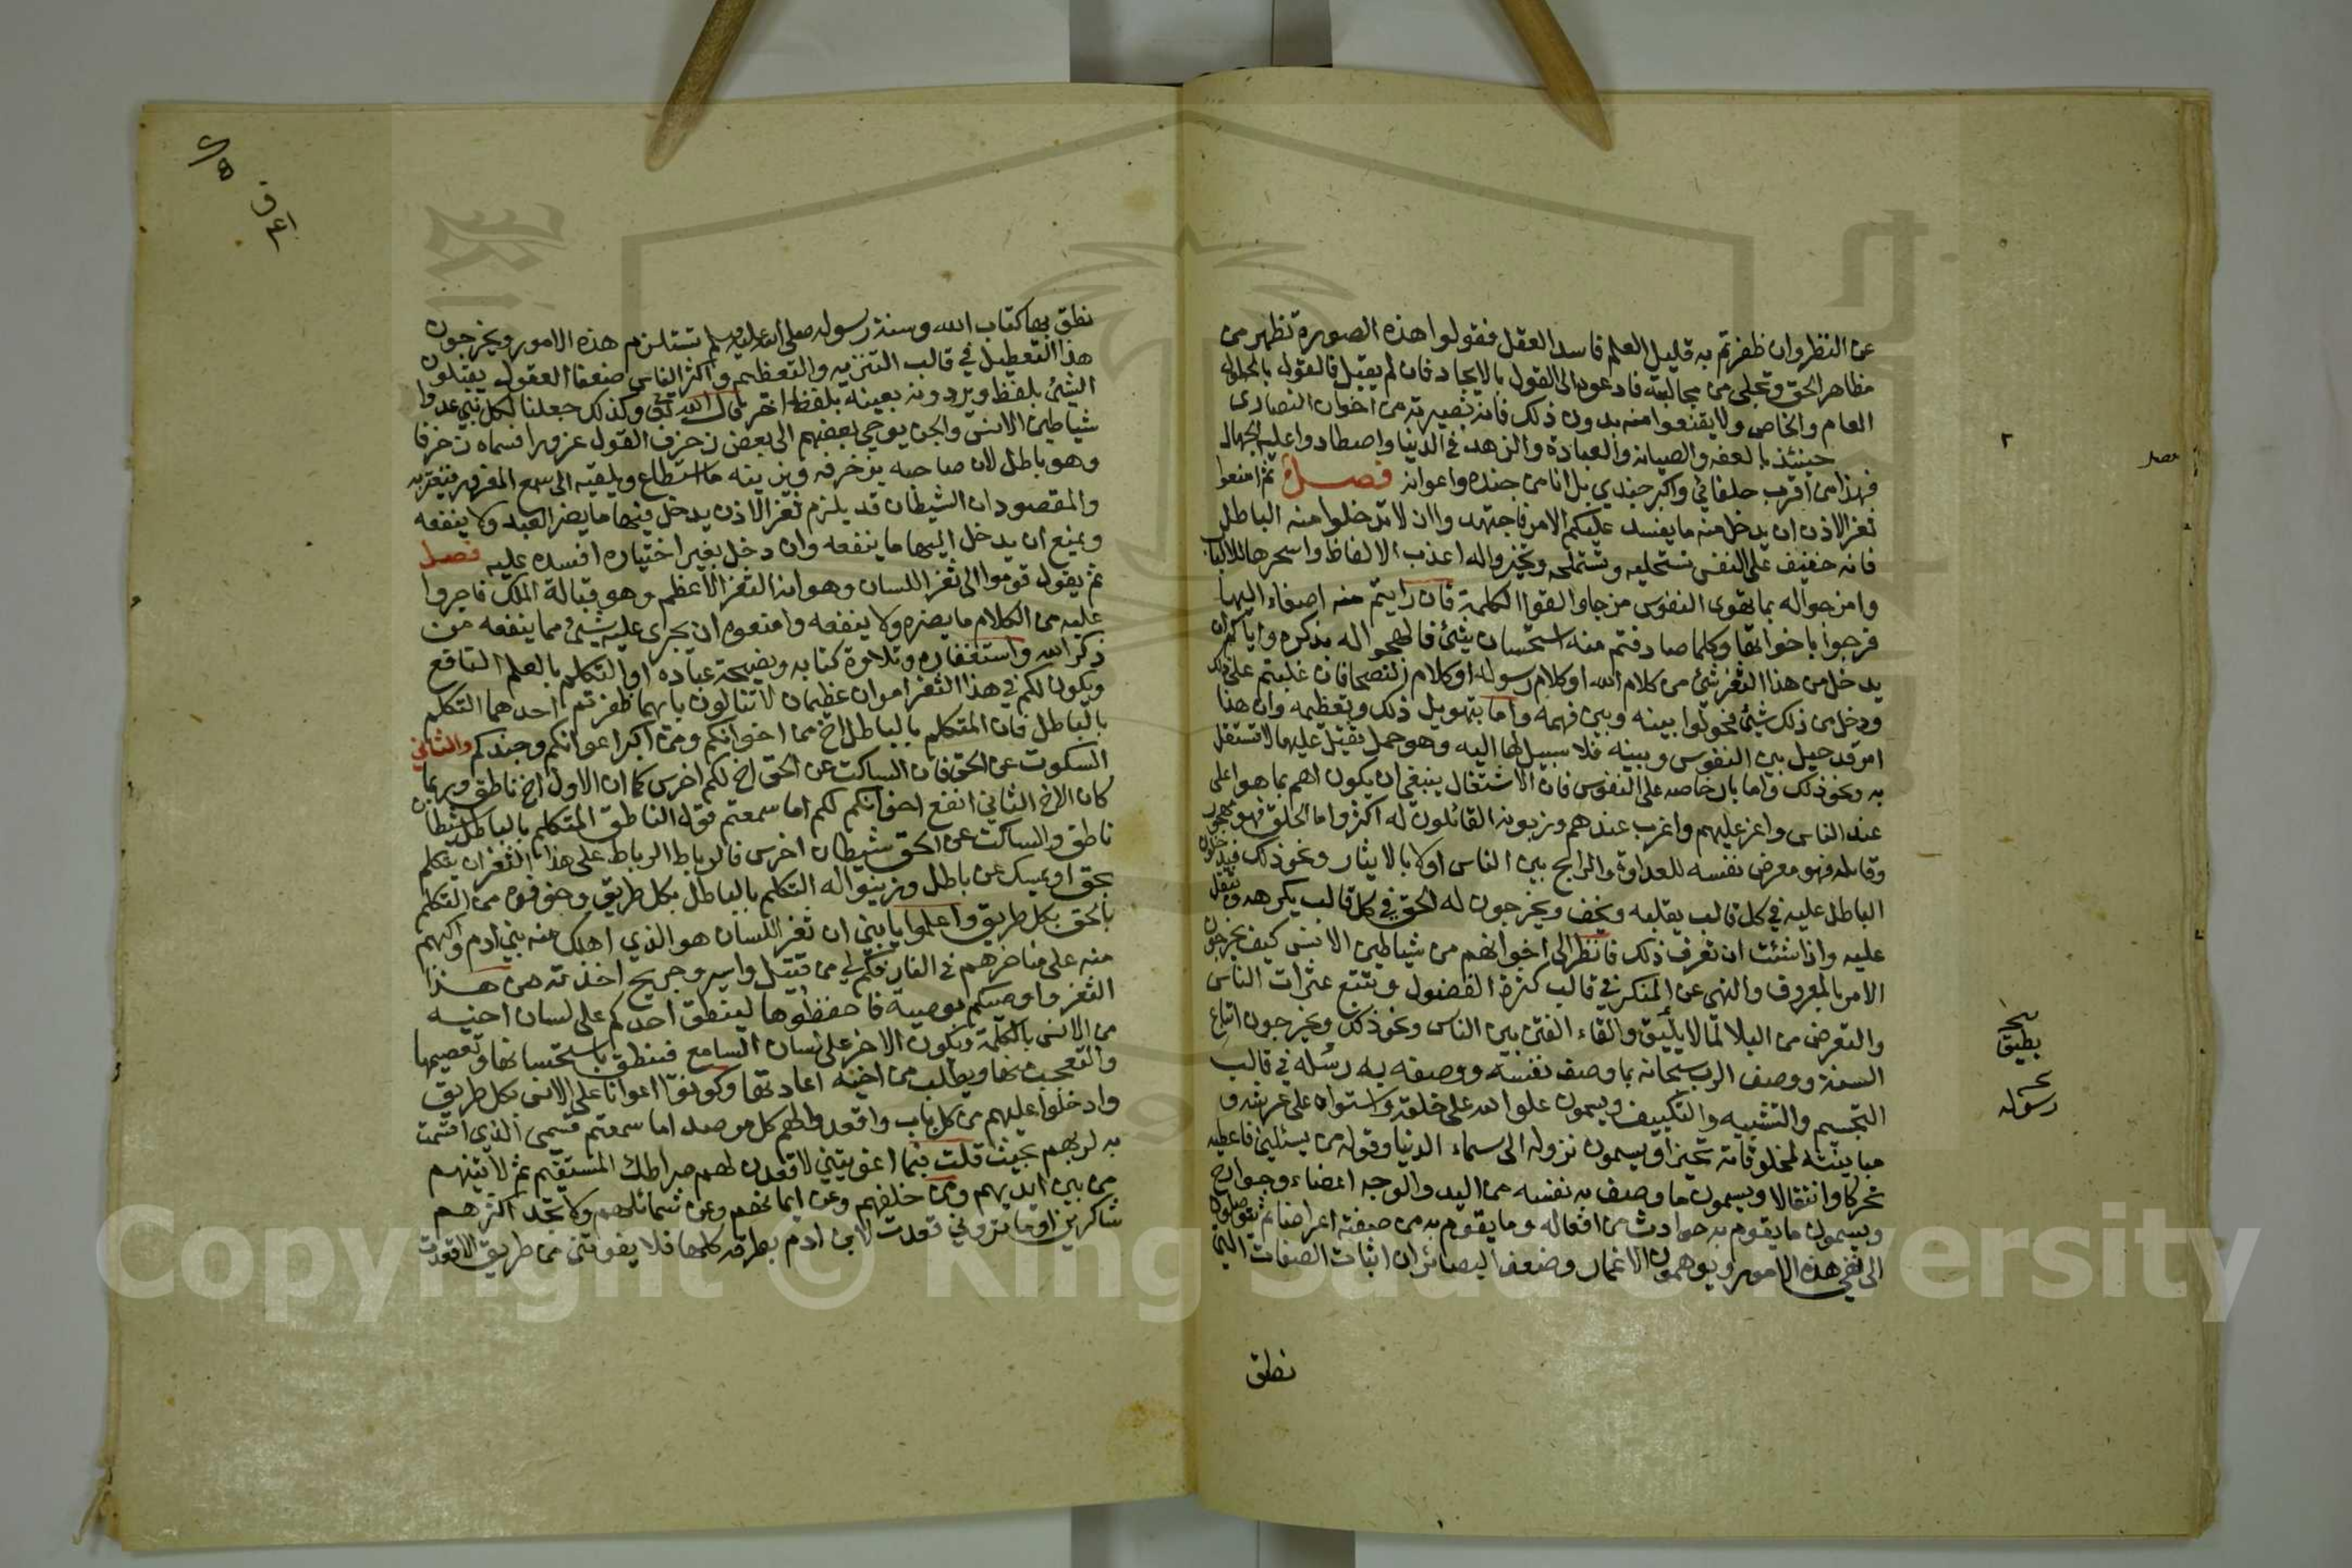 عن النظر وان ظفرتم به قليل العلم فاسد العقل فقولوا هذه الصورة تظهر من
مظاهر الحق وتجلى من مجاليه فادعوه الى القول بالايحاد فان لم يقبل فالقول بالحلول
العام والخاص ولا يقنعوا منه بدون ذلك فانه نصيره من اخوان النصارى
حينئذ بالعفه والصيانه والعباده والزهد فى الدنيا واصطادوا عليه الجهال
فهذا من اقرب خلفائي واكبر جندي بل انا من جنده واعوانه فصل ثم امنعوا
ثغر الاذن ان يدخل منه ما يفسد عليكم الامر فاجتهدوا ان لا تدخلوا منه الباطل
فانه خفيف على النفس تستحليه وتستملحه وتخيروا له اعذب الالفاظ واسحرها للالباب
وامزجوا له بما تهوى النفوس مزجا والقوا الكلمة فان رايتم منه اصغاء اليها
فزجوا باخواتها وكلما صادفتم منه استحسان شئ فالهجوا له بذكره واياكم ان
يدخل من هذا الثغر شئ من كلام الله او كلام رسوله او كلام النصحا فان غلبتم على ذلك
ودخل من ذلك شئ فحولوا بينه وبين فهمه واما بتهويل ذلك وتعظيمه وان هذا
امر قد حيل بين النفوس وبينه فلا سبيل لها اليه وهو حمل ثقيل عليها لا تستقل
به ونحو ذلك واما بارخاصه على النفوس فان الاشتغال ينبغي ان يكون اهم بما هو اعلى
عند الناس واعز عليهم واغرب عندهم وزبونه القائلون له اكثر واما الحق فهو مهجور
وقائله فهو معرض نفسه للعداوة والرابح بين الناس اولا بالايثار ونحو ذلك فيدخلون
الباطل عليه في كل قالب يقلبه ويخف ويخرجون له الحق في كل قالب يكرهه ويثقل
عليه واذا شئت ان تعرف ذلك فانظر الى اخوانهم من شياطين الانس كيف يخرجون
الامر بالمعروف والنهي عن المنكر في قالب كثرة الفضول وتتبع عثرات الناس
والتعرض من البلا لما لا يليق والقاء الفتن بين الناس ونحو ذلك ويخرجون اتباع
السنة ووصف الرب سبحانه بما وصف نفسه ووصفه به رسله في قالب
التجسيم والتشبيه والتكييف ويسمون علو الله على خلقه واستواه على عرشه و
مباينته لمخلوقاته تحيزا ويسمون نزوله الى سماء الدنيا وقوله من يسئلني فاعطيه
تحركا وانتقالا ويسمون ما وصف به نفسه من اليد والوجه اعضاء وجوارح
ويسمون ما يقوم به حوادث من افعاله وما يقوم به من صفته اعراضا ثم يتوصلون
الى نفي هذه الامور ويوهمون الاغمار وضعفا البصائر ان اثبات الصفات التي
نطق
يطيق
رسوله
نطق بها كتاب الله وسنة رسوله صلى الله عليه وسلم تستلزم هذه الامور ويخرجون
هذا التعطيل في قالب التنزيه والتعظيم واكثر الناس ضعفا العقول يقبلون
الشئ بلفظ ويردونه بعينه بلفظ اخر قال الله تعالى وكذلك جعلنا لكل نبي عدوا
شياطين الانس والجن يوحي بعضهم الى بعض زخرف القول غرورا فسماه زخرفا
وهو باطل لان صاحبه يزخرفه ويزينه ما استطاع ويلقيه الى سمع المغرور فيغتر به
والمقصود ان الشيطان قد يلزم ثغر الاذن يدخل فيها ما يضر العبد ولا ينفعه
ويمنع ان يدخل اليها ما ينفعه وان دخل بغير اختياره افسده عليه فصل
ثم يقول قوموا الى ثغر اللسان وهو انه الثغر الاعظم وهو قبالة الملك فاجروا
عليه من الكلام ما يضره ولا ينفعه وامنعوه ان يجرى عليه شئ مما ينفعه من
ذكر الله واستغفاره وتلاوة كتابه ونصيحة عباده او التكلم بالعلم النافع
ويكون لكم في هذا الثغر امران عظيمان لا تنالون بايهما ظفرتم احدهما التكلم
بالباطل فان المتكلم بالباطل اخ من اخوانكم ومن اكبر اعوانكم وجندكم والثاني
السكوت عن الحق فان الساكت عن الحق اخ لكم اخرس كما ان الاول اخ ناطق وربما
كان الاخ الثاني انفع اخوانكم لكم اما سمعتم قول الناطق المتكلم بالباطل شيطان
ناطق والساكت عن الحق شيطان اخرس فالرباط الرباط على هذا الثغر ان يتكلم
بحق او يمسك عن باطل وزينوا له التكلم بالباطل بكل طريق وخوفوه من التكلم
بالحق بكل طريق واعلموا يا بني ان ثغر اللسان هو الذي اهلك منه بني ادم واكبهم
منه على مناخرهم في النار فكم لي من قتيل واسير وجريح اخذته من هذا
الثغر واوصيكم بوصية فاحفظوها لينطق احدكم على لسان اخيه
من الانس بالكلمة ويكون الاخر على لسان السامع فينطق باستحسانها وتعظيمها
والتعجب بها ويطلب من اخيه اعادتها وكونوا اعوانا على الانس بكل طريق
وادخلوا عليهم من كل باب واقعدوا لهم كل مرصد اما سمعتم قسمي الذي اقسمت
به لربهم بحيث قلت فبما اغويتني لاقعدن لهم صراطك المستقيم ثم لاتينهم
من بين ايديهم ومن خلفهم وعن ايمانهم وعن شمائلهم ولا تجد اكثرهم
شاكرين اوما تروني قعدت لابن ادم بطرقه كلها فلا يفوتني من طريق الا قعدت
Copyright © King Saud University